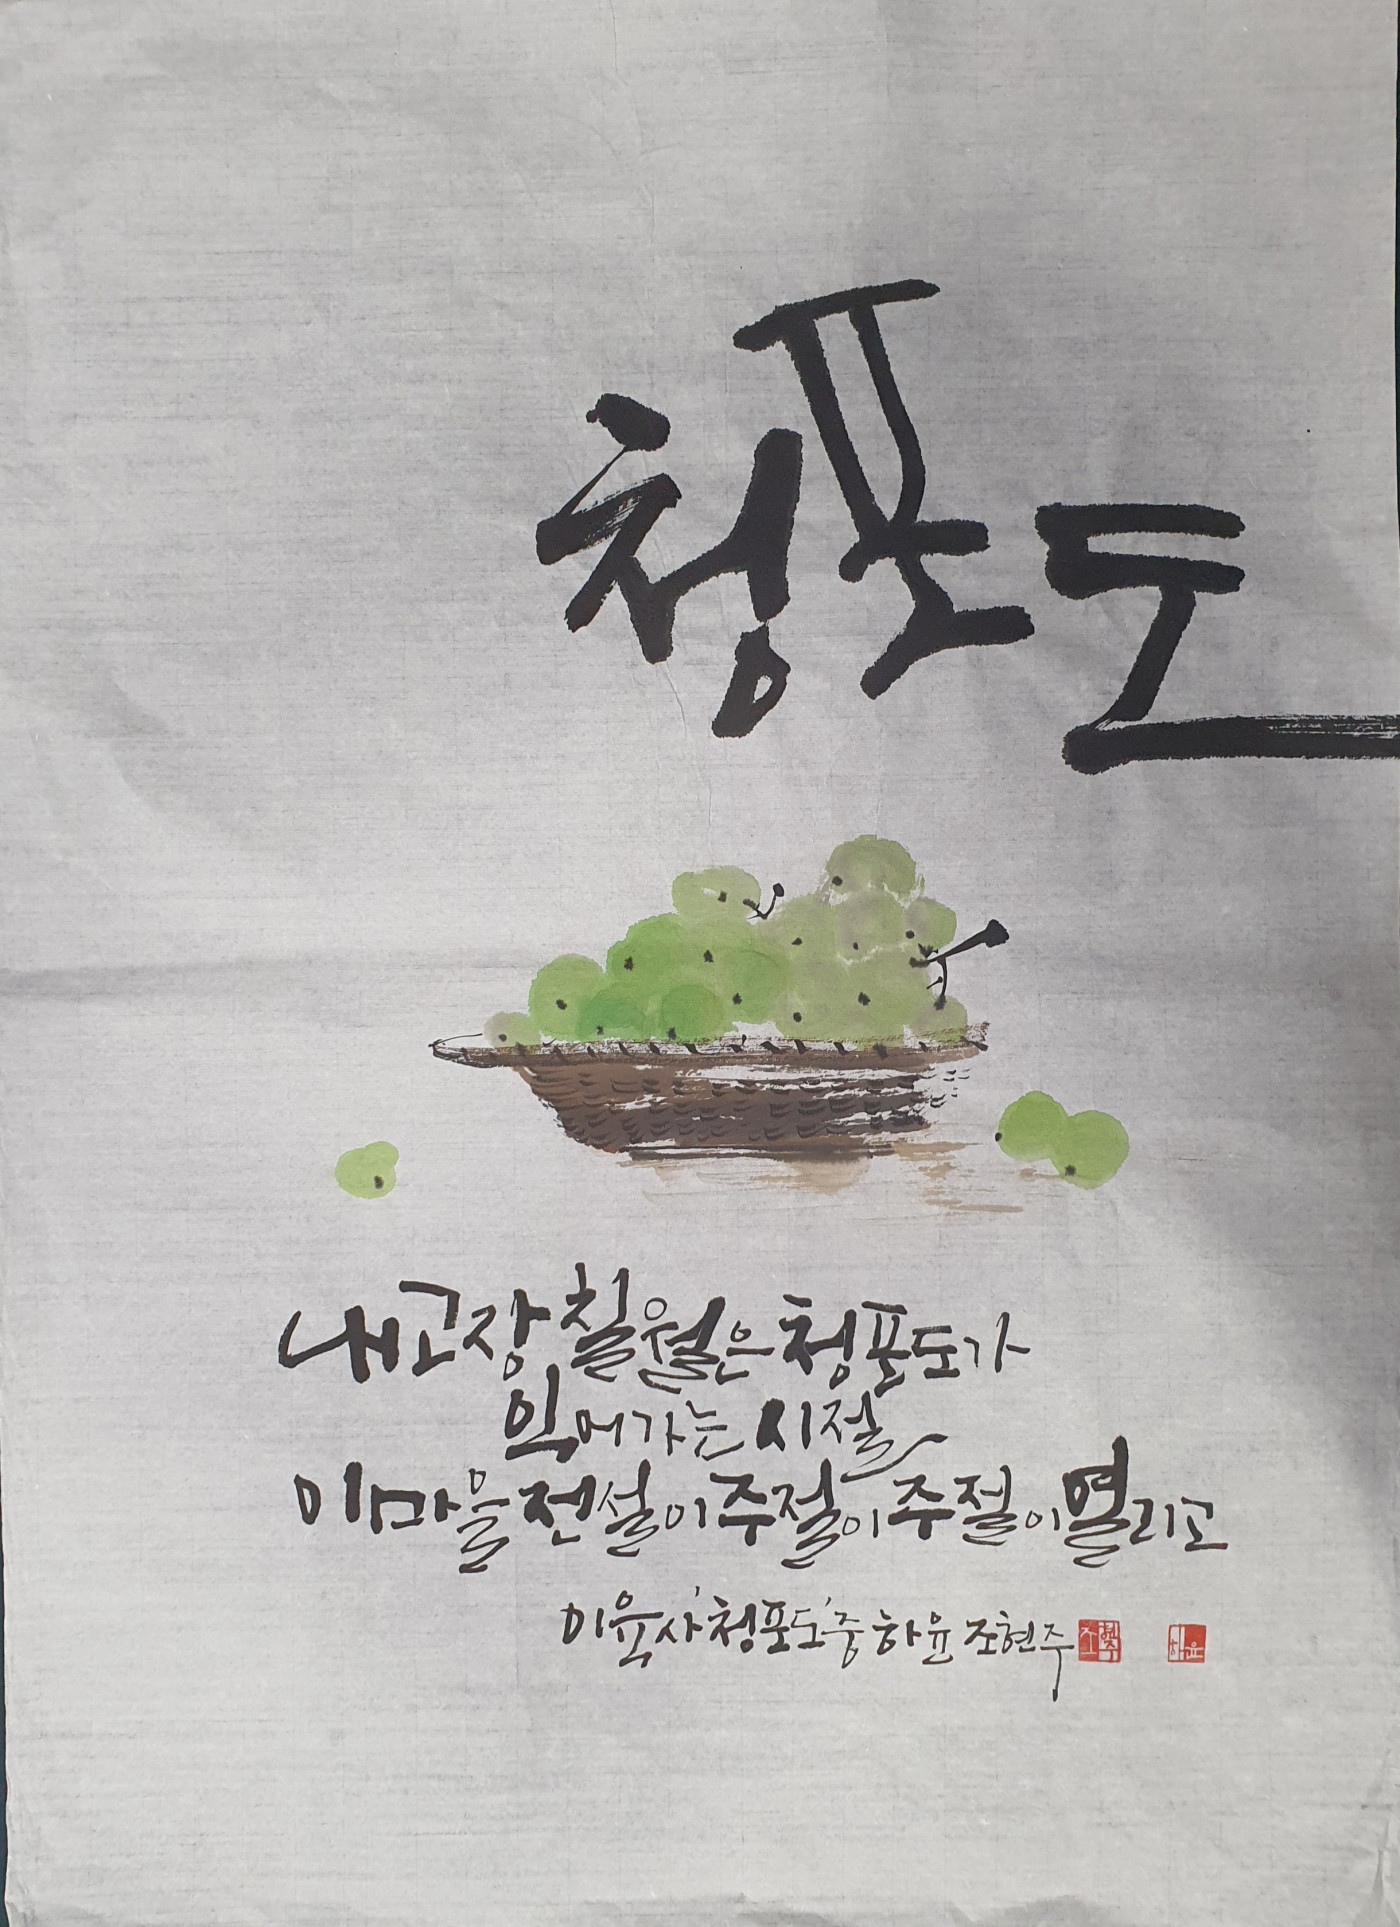 청포도
내 고장 칠월은 청포도가
익어가는 시절
이 마을 전설이 주절이 주절이 열리고
이육사 '청포도' 중 하윤 조현주
조현주 하윤